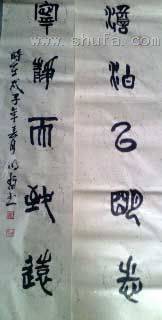 www.shufa.com
澹泊以明志
寧靜而致遠
時在戊子年春月